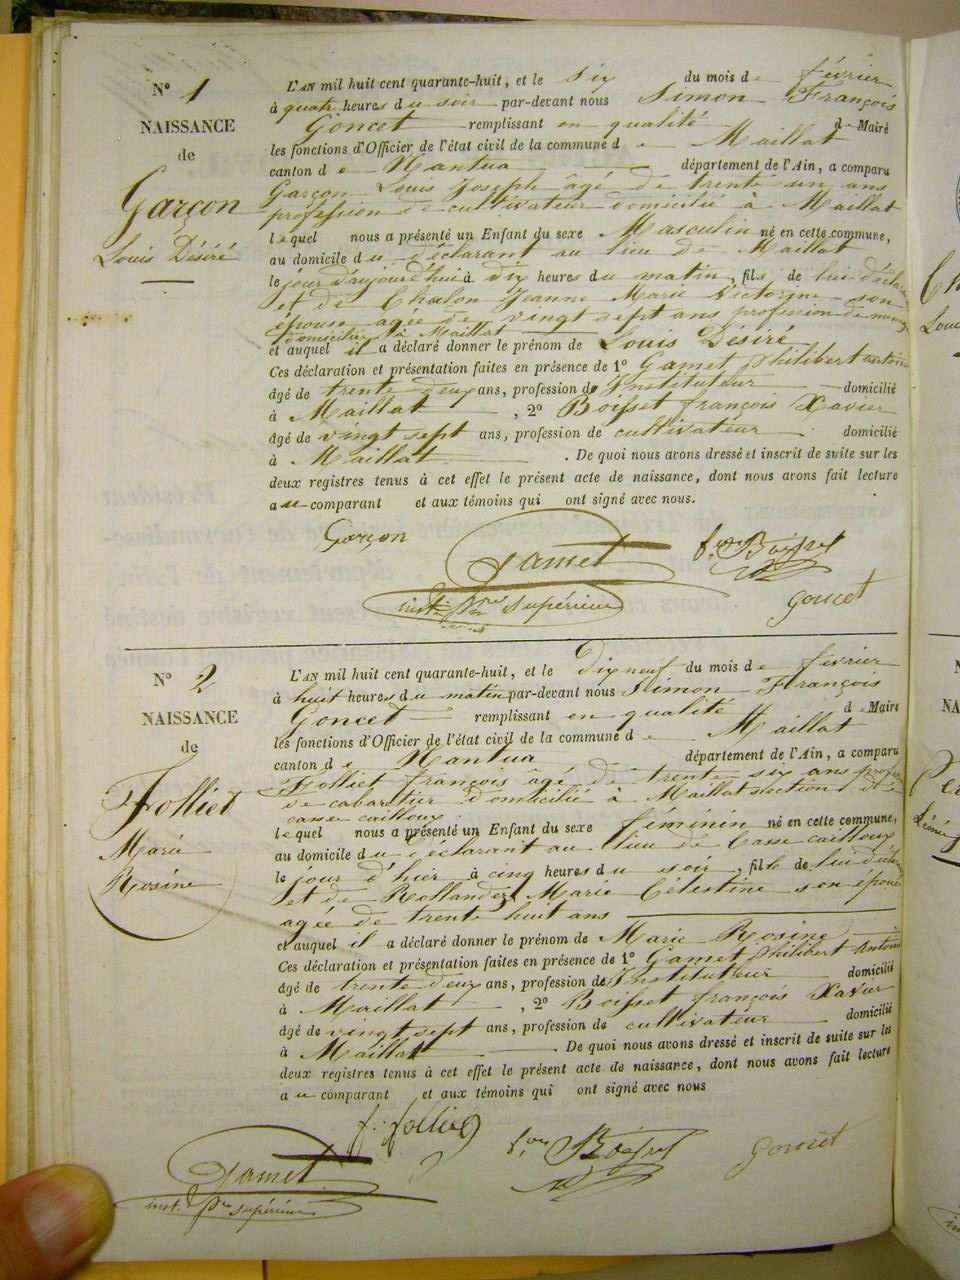 N° 1
NAISSANCE
de
Garçon
Louis Désiré
L'AN mil huit cent quarante-huit, et le six du mois de février
à quatre heures du soir par-devant nous Simon François
Goncet remplissant en qualité de Maire
les fonctions d'Officier de l'état civil de la commune de Maillat
canton de Nantua département de l'Ain, a comparu
Garçon Louis Joseph âgé de trente un ans
profession de cultivateur domicilié à Maillat
lequel nous a présenté un Enfant du sexe Masculin né en cette commune,
au domicile du déclarant au lieu de Maillat
le jour d'aujourd'hui à dix heures du matin, fils de lui déclarant
et de Chalon Jeanne Marie Victorine son
épouse agée de vingt sept ans profession de
domiciliée à Maillat
et auquel il a déclaré donner le prénom de Louis Désiré
Ces déclaration et présentation faites en présence de 1° Gamet Philibert Antoine
âgé de trente deux ans, profession d' Instituteur domicilié
à Maillat, 2° Boisset françois Xavier
âgé de vingt sept ans, profession de cultivateur domicilié
à Maillat. De quoi nous avons dressé et inscrit de suite sur les
deux registres tenus à cet effet le présent acte de naissance, dont nous avons fait lecture
au comparant et aux témoins qui ont signé avec nous.
Garçon Gamet Boisset
inst. supérieur Goncet
N° 2
NAISSANCE
de
Folliet
Marie
Rosine
L'AN mil huit cent quarante-huit, et le Dix neuf du mois de février
à huit heures du matin par-devant nous Simon François
Goncet remplissant en qualité de Maire
les fonctions d'Officier de l'état civil de la commune de Maillat
canton de Nantua département de l'Ain, a comparu
Folliet françois âgé de trente six ans profession
de cabaretier domicilié à Maillat section de
casse cailloux
lequel nous a présenté un Enfant du sexe féminin né en cette commune,
au domicile du déclarant au lieu de Casse cailloux
le jour d'hier à cinq heures du soir, fille de lui déclarant
et de Rollandez Marie Célestine son épouse
agée de trente huit ans
et auquel il a déclaré donner le prénom de Marie Rosine
Ces déclaration et présentation faites en présence de 1° Gamet Philibert Antoine
âgé de trente deux ans, profession d' Instituteur domicilié
à Maillat, 2° Boisset françois Xavier
âgé de vingt sept ans, profession de cultivateur domicilié
à Maillat. De quoi nous avons dressé et inscrit de suite sur les
deux registres tenus à cet effet le présent acte de naissance, dont nous avons fait lecture
au comparant et aux témoins qui ont signé avec nous
f. folliet
Gamet Boisset Goncet
inst. pre supérieur